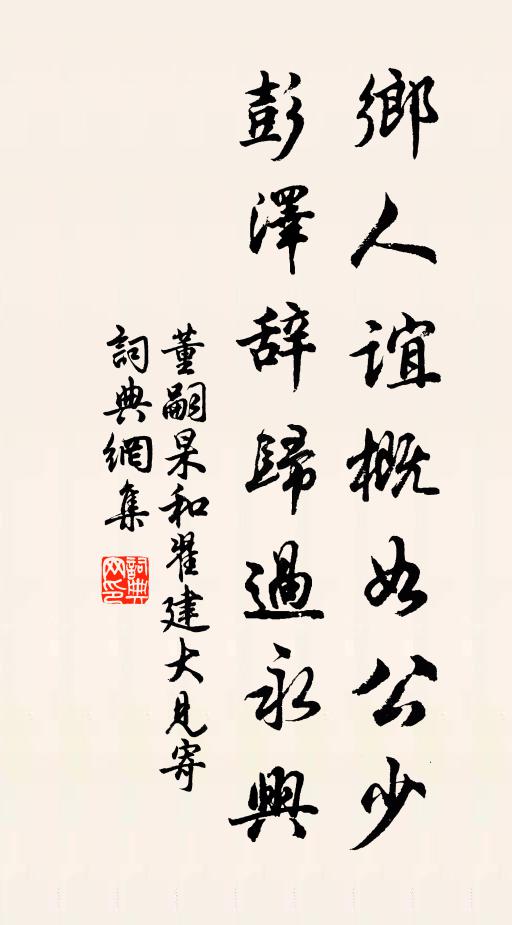 鄉人誼概如公少
彭澤辞歸過永興
董嗣杲和翟建大見寄
詞典網集
詞典网印